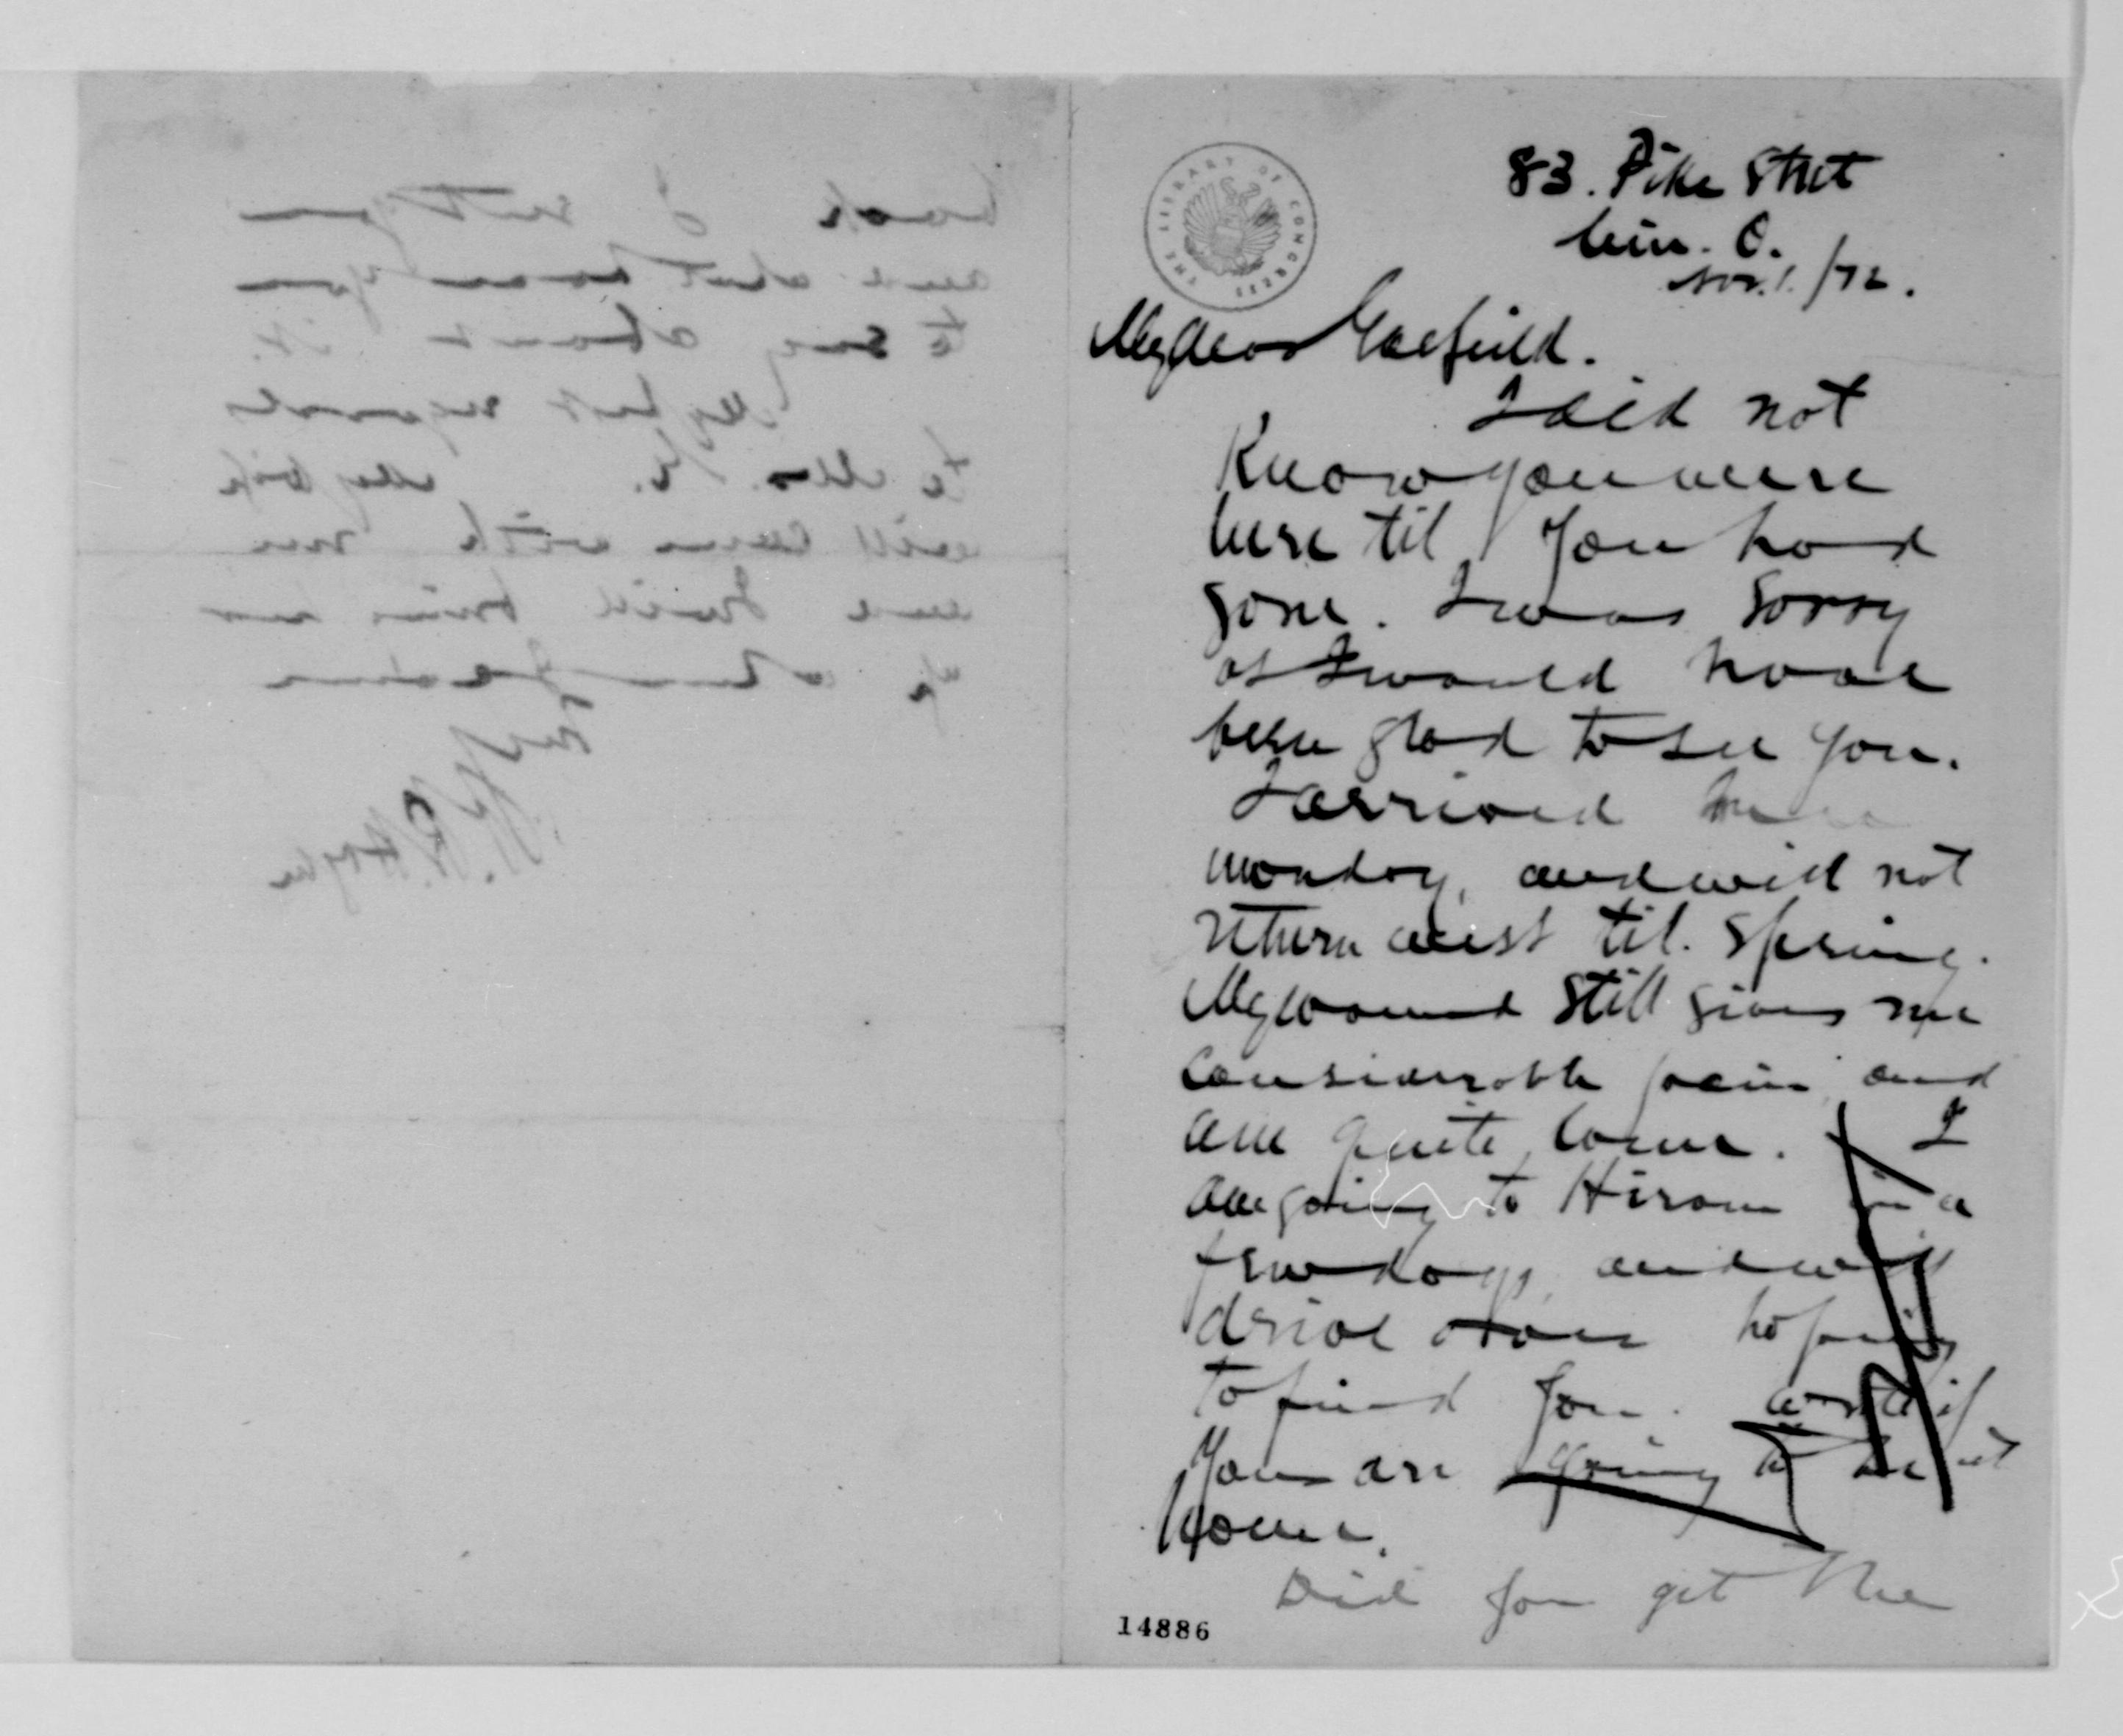 THE LIBRARY OF CONGRESS
83. Pike Street
Cin. O.
Nov. 1. /72.
My dear Garfield.
I did not
Know you were
here til You had
gone. I was sorry
as I would have
been glad to see you.
I arrived here
monday, and will not
return west til. spring.
My wound still gives me
considerable pain, and
am quite lame. I
am going to Hiram in a
few days, and will
drive over hoping
to find you. if
You are going to be at
Home.
Did you get the
14886
book I sent you
and what have you
to say about it.
My best regards
to Mrs. G. My wife
will come with me
and I will bring